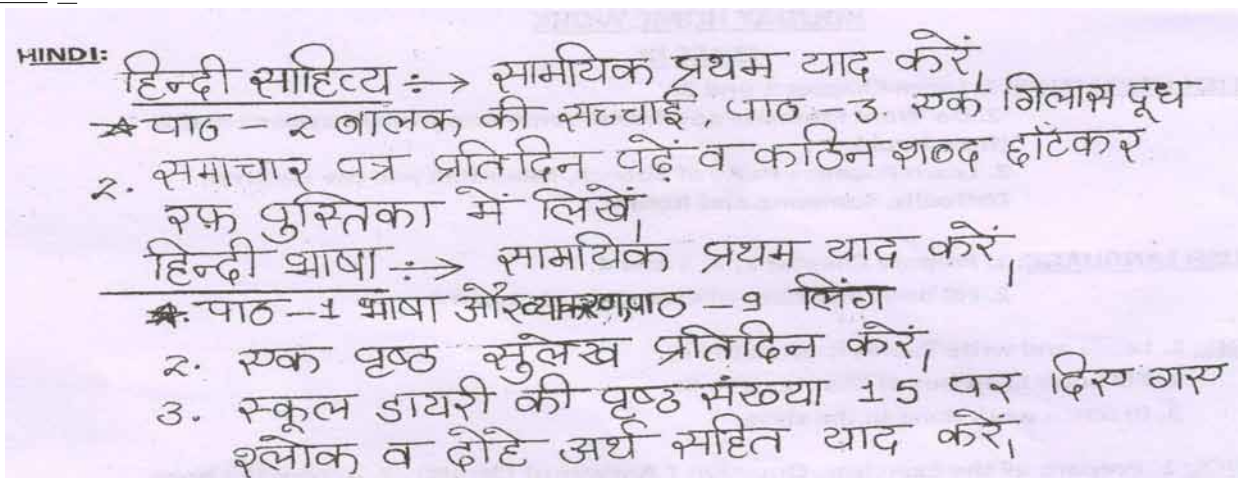 HINDI:
हिन्दी साहित्य :→ सामयिक प्रथम याद करें।
पाठ - 2 बालक की सच्चाई, पाठ - 3 एक गिलास दूध
2. समाचार पत्र प्रतिदिन पढ़ें व कठिन शब्द छाँटकर
रफ़ पुस्तिका में लिखें।
हिन्दी भाषा :→ सामयिक प्रथम याद करें।
पाठ - 1 भाषा और व्याकरण, पाठ - 9 लिंग
2. एक पृष्ठ सुलेख प्रतिदिन करें।
3. स्कूल डायरी की पृष्ठ संख्या 15 पर दिए गए
श्लोक व दोहे अर्थ सहित याद करें।